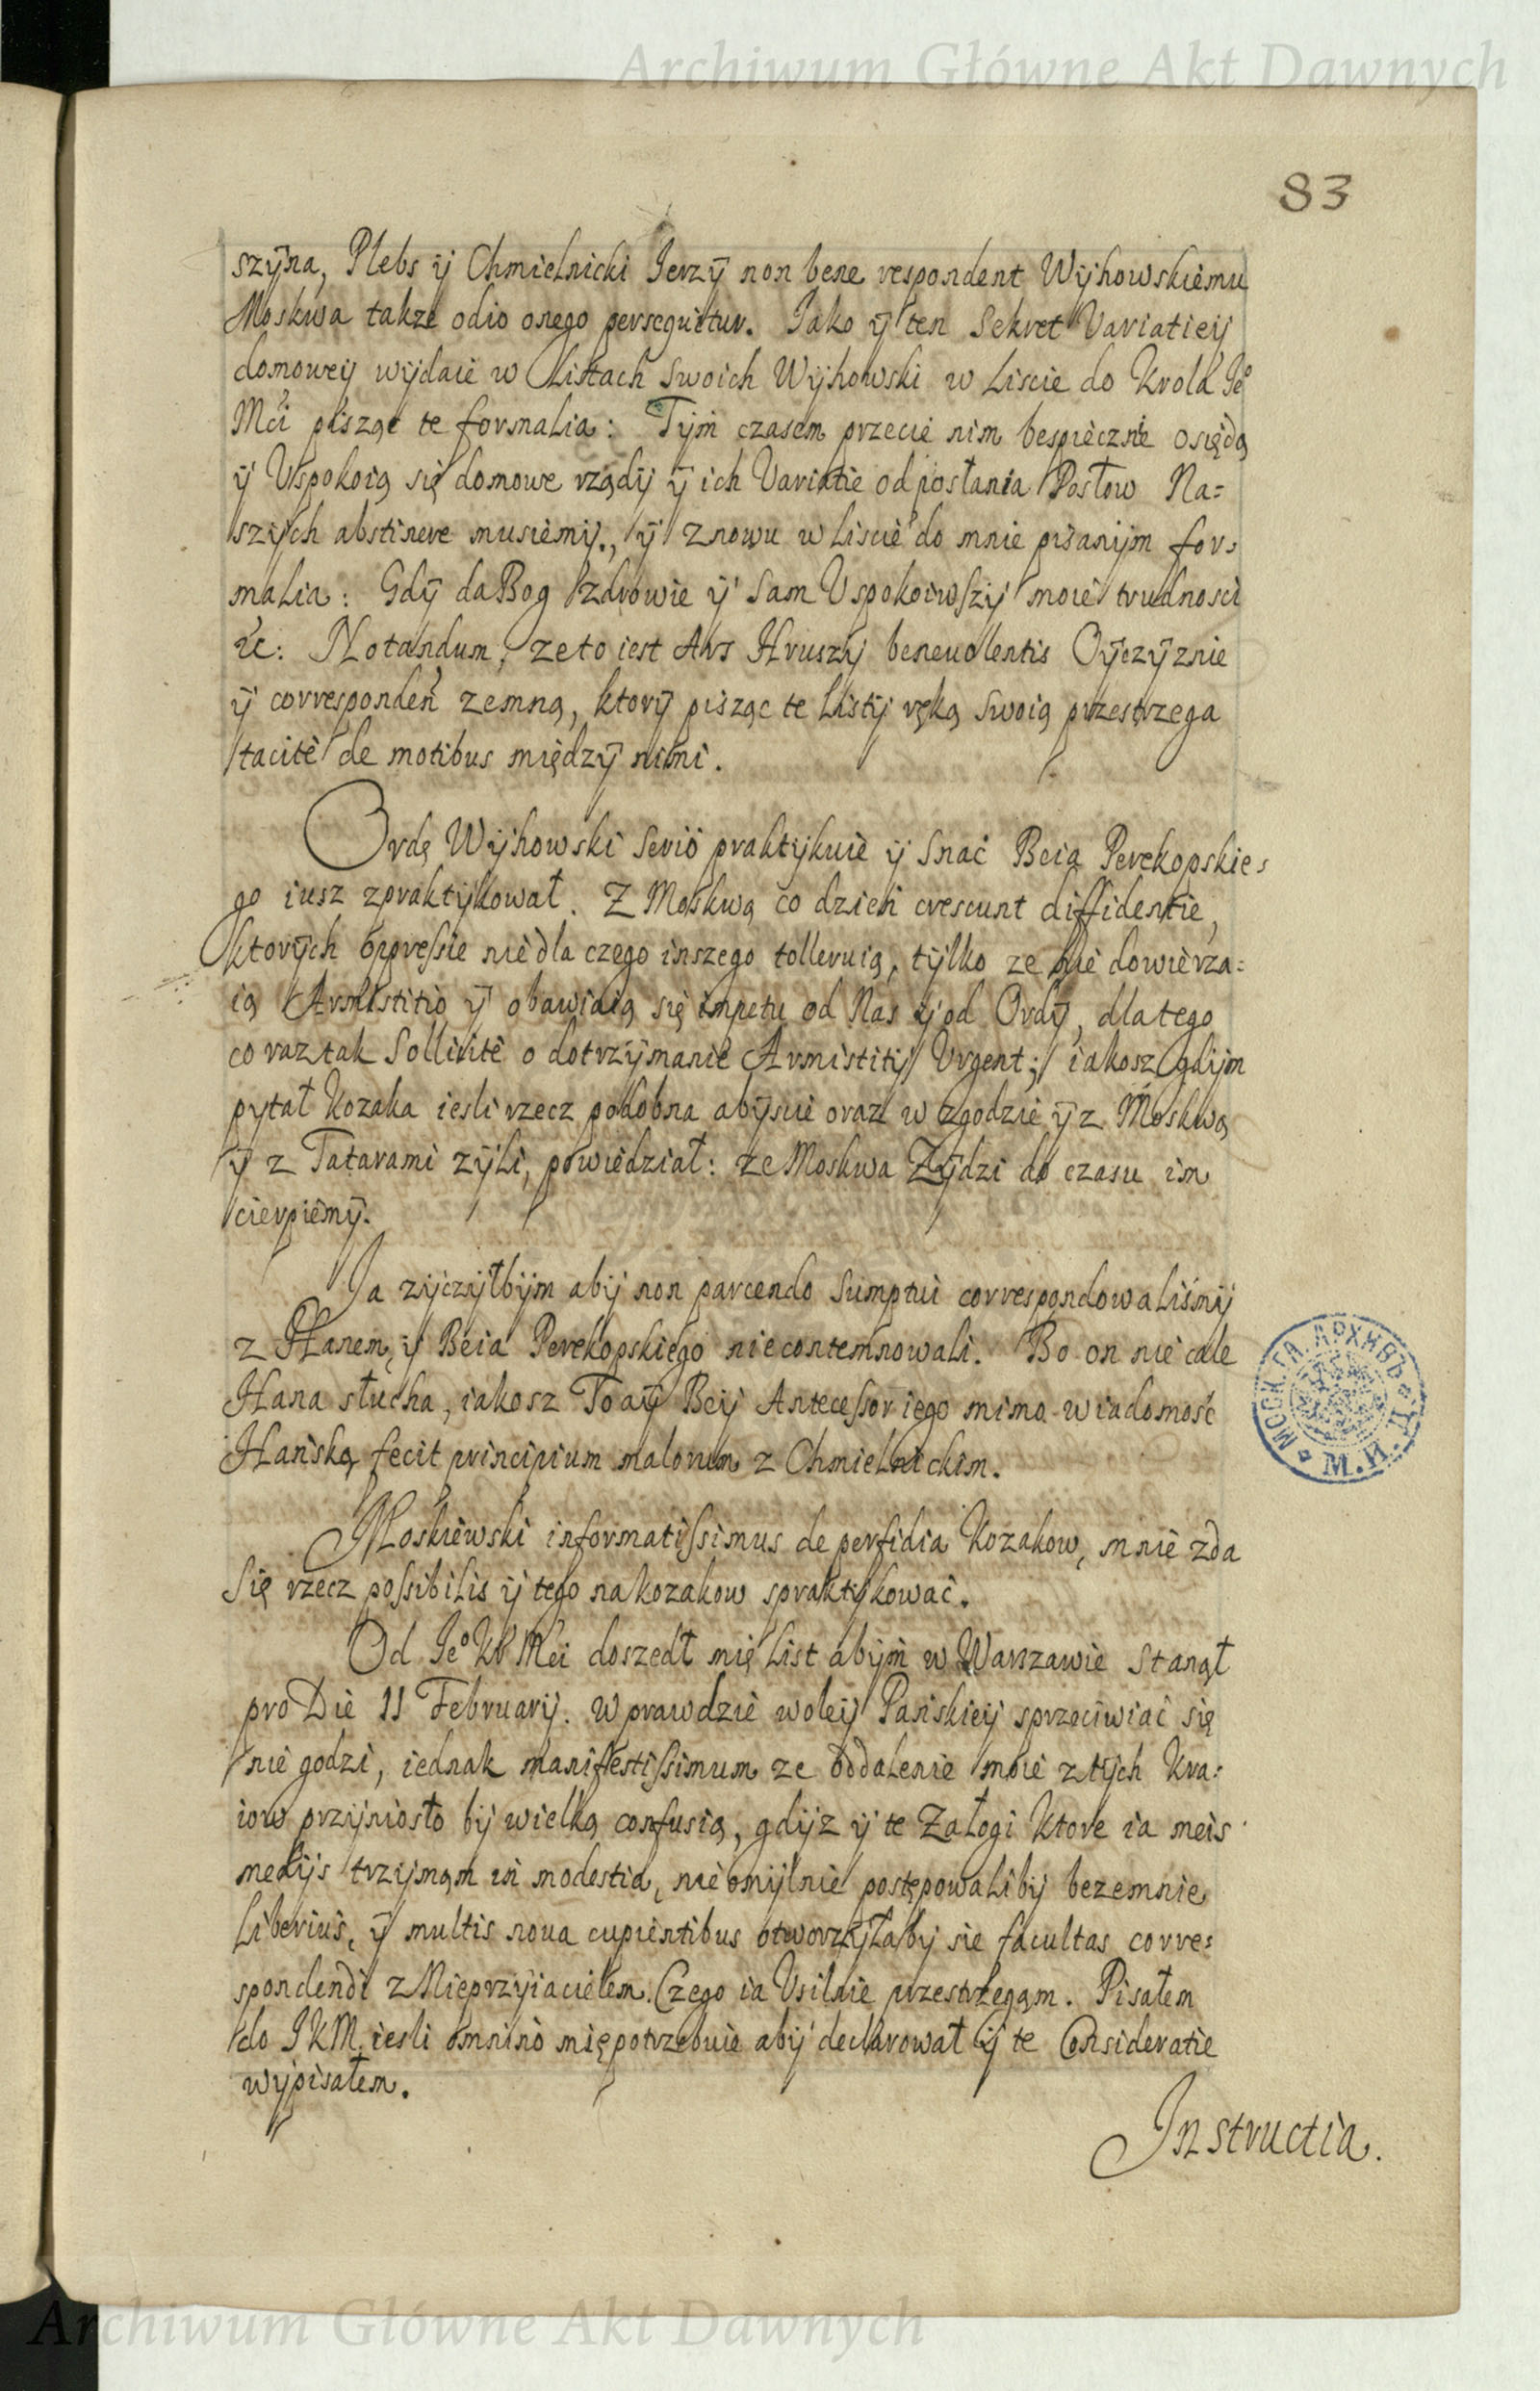 Archiwum Główne Akt Dawnych
83
szyna, Plebs ÿ Chmielnicki Ierzÿ non bene respondent Wÿhowskiemu
Moskwa takze odio onego persequitur. Iako ÿ ten Sekret Variatieÿ
domoweÿ wÿdaie w Listach swoich Wÿhowski w Liscie do Krola Ie°
Mći pisząc te formalia: Tÿm czasem przecie nim bespiecznie osiędą
ÿ Uspokoią się domowe rządÿ ÿ ich Variatie od posłania Posłow Na=
szÿch abstinere musiemÿ., ÿ znowu w Liscie do mnie pisanÿm for=
malia: Gdÿ da Bog zdrowie ÿ sam Uspokoiwszÿ moie trudnosci
&c: Notandum, ze to iest Ars Hruszÿ beneuolentis Oÿczÿznie
ÿ correspondeń zemną, ktorÿ pisząc te Listÿ ręką swoią przestrzega
tacitè de motibus międzÿ nimi.
Ordę Wÿhowski seriò praktÿkuie ÿ snać Beia Perekopskie=
go iusz zpraktÿkował. Z Moskwą co dzień crescunt diffidentie,
ktorÿch oppressie nie dla czego inszego tolleruią, tÿlko ze nie dowierza=
ią Armistitio ÿ obawiaią się impetu od Nas ÿ od Ordÿ, dlatego
co raz tak sollicitè o dotrzÿmanie Armistitÿ Urgent; iakosz gdÿm
pytał Kozaka iesli rzecz podobna abÿscie oraz w zgodzie ÿ z Moskwą
ÿ z Tatarami zÿli, powiedział: ze Moskwa Zÿdzi do czasu im
cierpiemÿ.
Ja zÿczÿłbÿm abÿ non parcendo sumptui correspondowaliśmÿ
z Hanem, ÿ Beia Perekopskiego niecontemnowali. Bo on nie cale
Hana słucha, iakosz Toaÿ Beÿ Antecessor iego mimo wiadomość
Hańską fecit principium malorum z Chmielnickim.
Moskiewski informatissimus de perfidia Kozakow, mnie zda
się rzecz possibilis ÿ tego na kozakow spraktÿkować.
Od Ie° Kr Mći doszedł mię List abÿm w Warszawie stanął
pro Die 11 Februarÿ. Wprawdzie woleÿ Pańskieÿ sprzeciwiać się
nie godzi, iednak manifestissimum ze oddalenie moie z tÿch Kra=
iow przÿniosło bÿ wielką confusią, gdÿz ÿ te Załogi Ktore ia meis
medÿs trzÿmąm in modestia, nieomÿlnie postępowalibÿ bezemnie
Liberius, ÿ multis noua cupientibus otworzÿłabÿ sie facultas corre=
spondendi z Nieprzÿiacielem. Czego ia Usilnie przestrzegąm. Pisałem
do I K M. iesli omninò mię potrzebuie abÿ declarował ÿ te Consideratie
wÿpisałem.
Instructia.
МОСК. ГЛ. АРХИВЪ М. И. Д.
Archiwum Główne Akt Dawnych